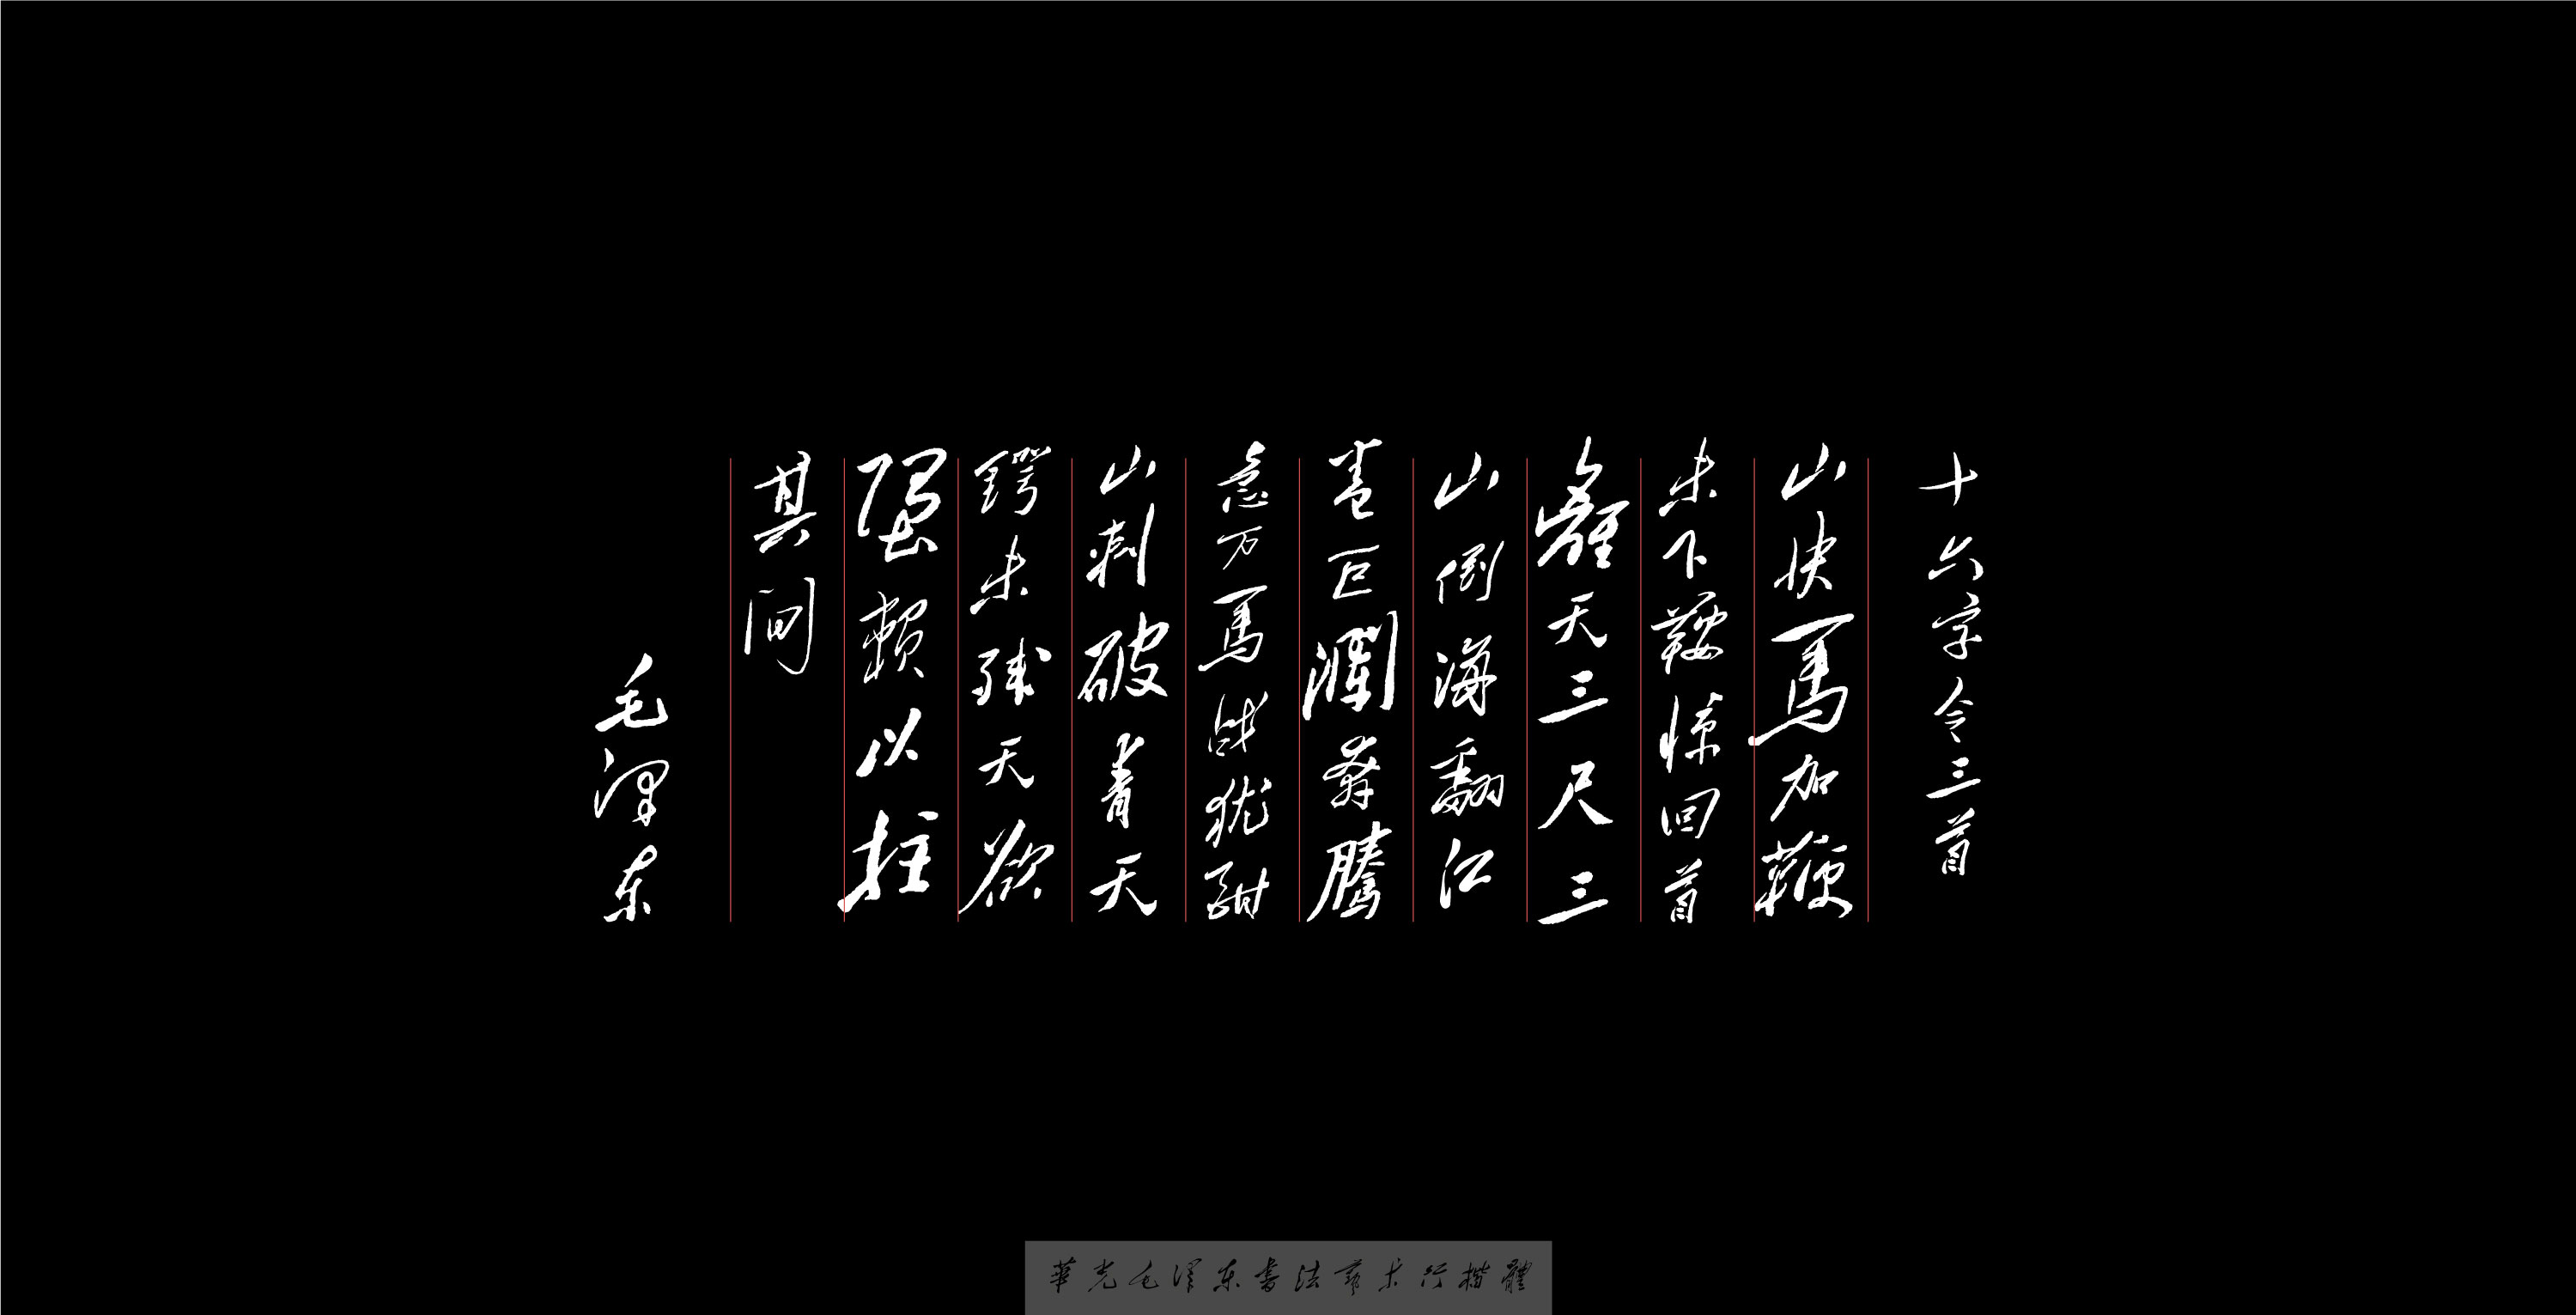 十六字令三首
山快馬加鞭
未下鞍惊回首
離天三尺三
山倒海翻江
卷巨瀾奔騰
急万馬战犹酣
山刺破青天
鍔未残天欲
墮賴以拄
其间
毛泽东
華光毛泽东書法藝术行楷體